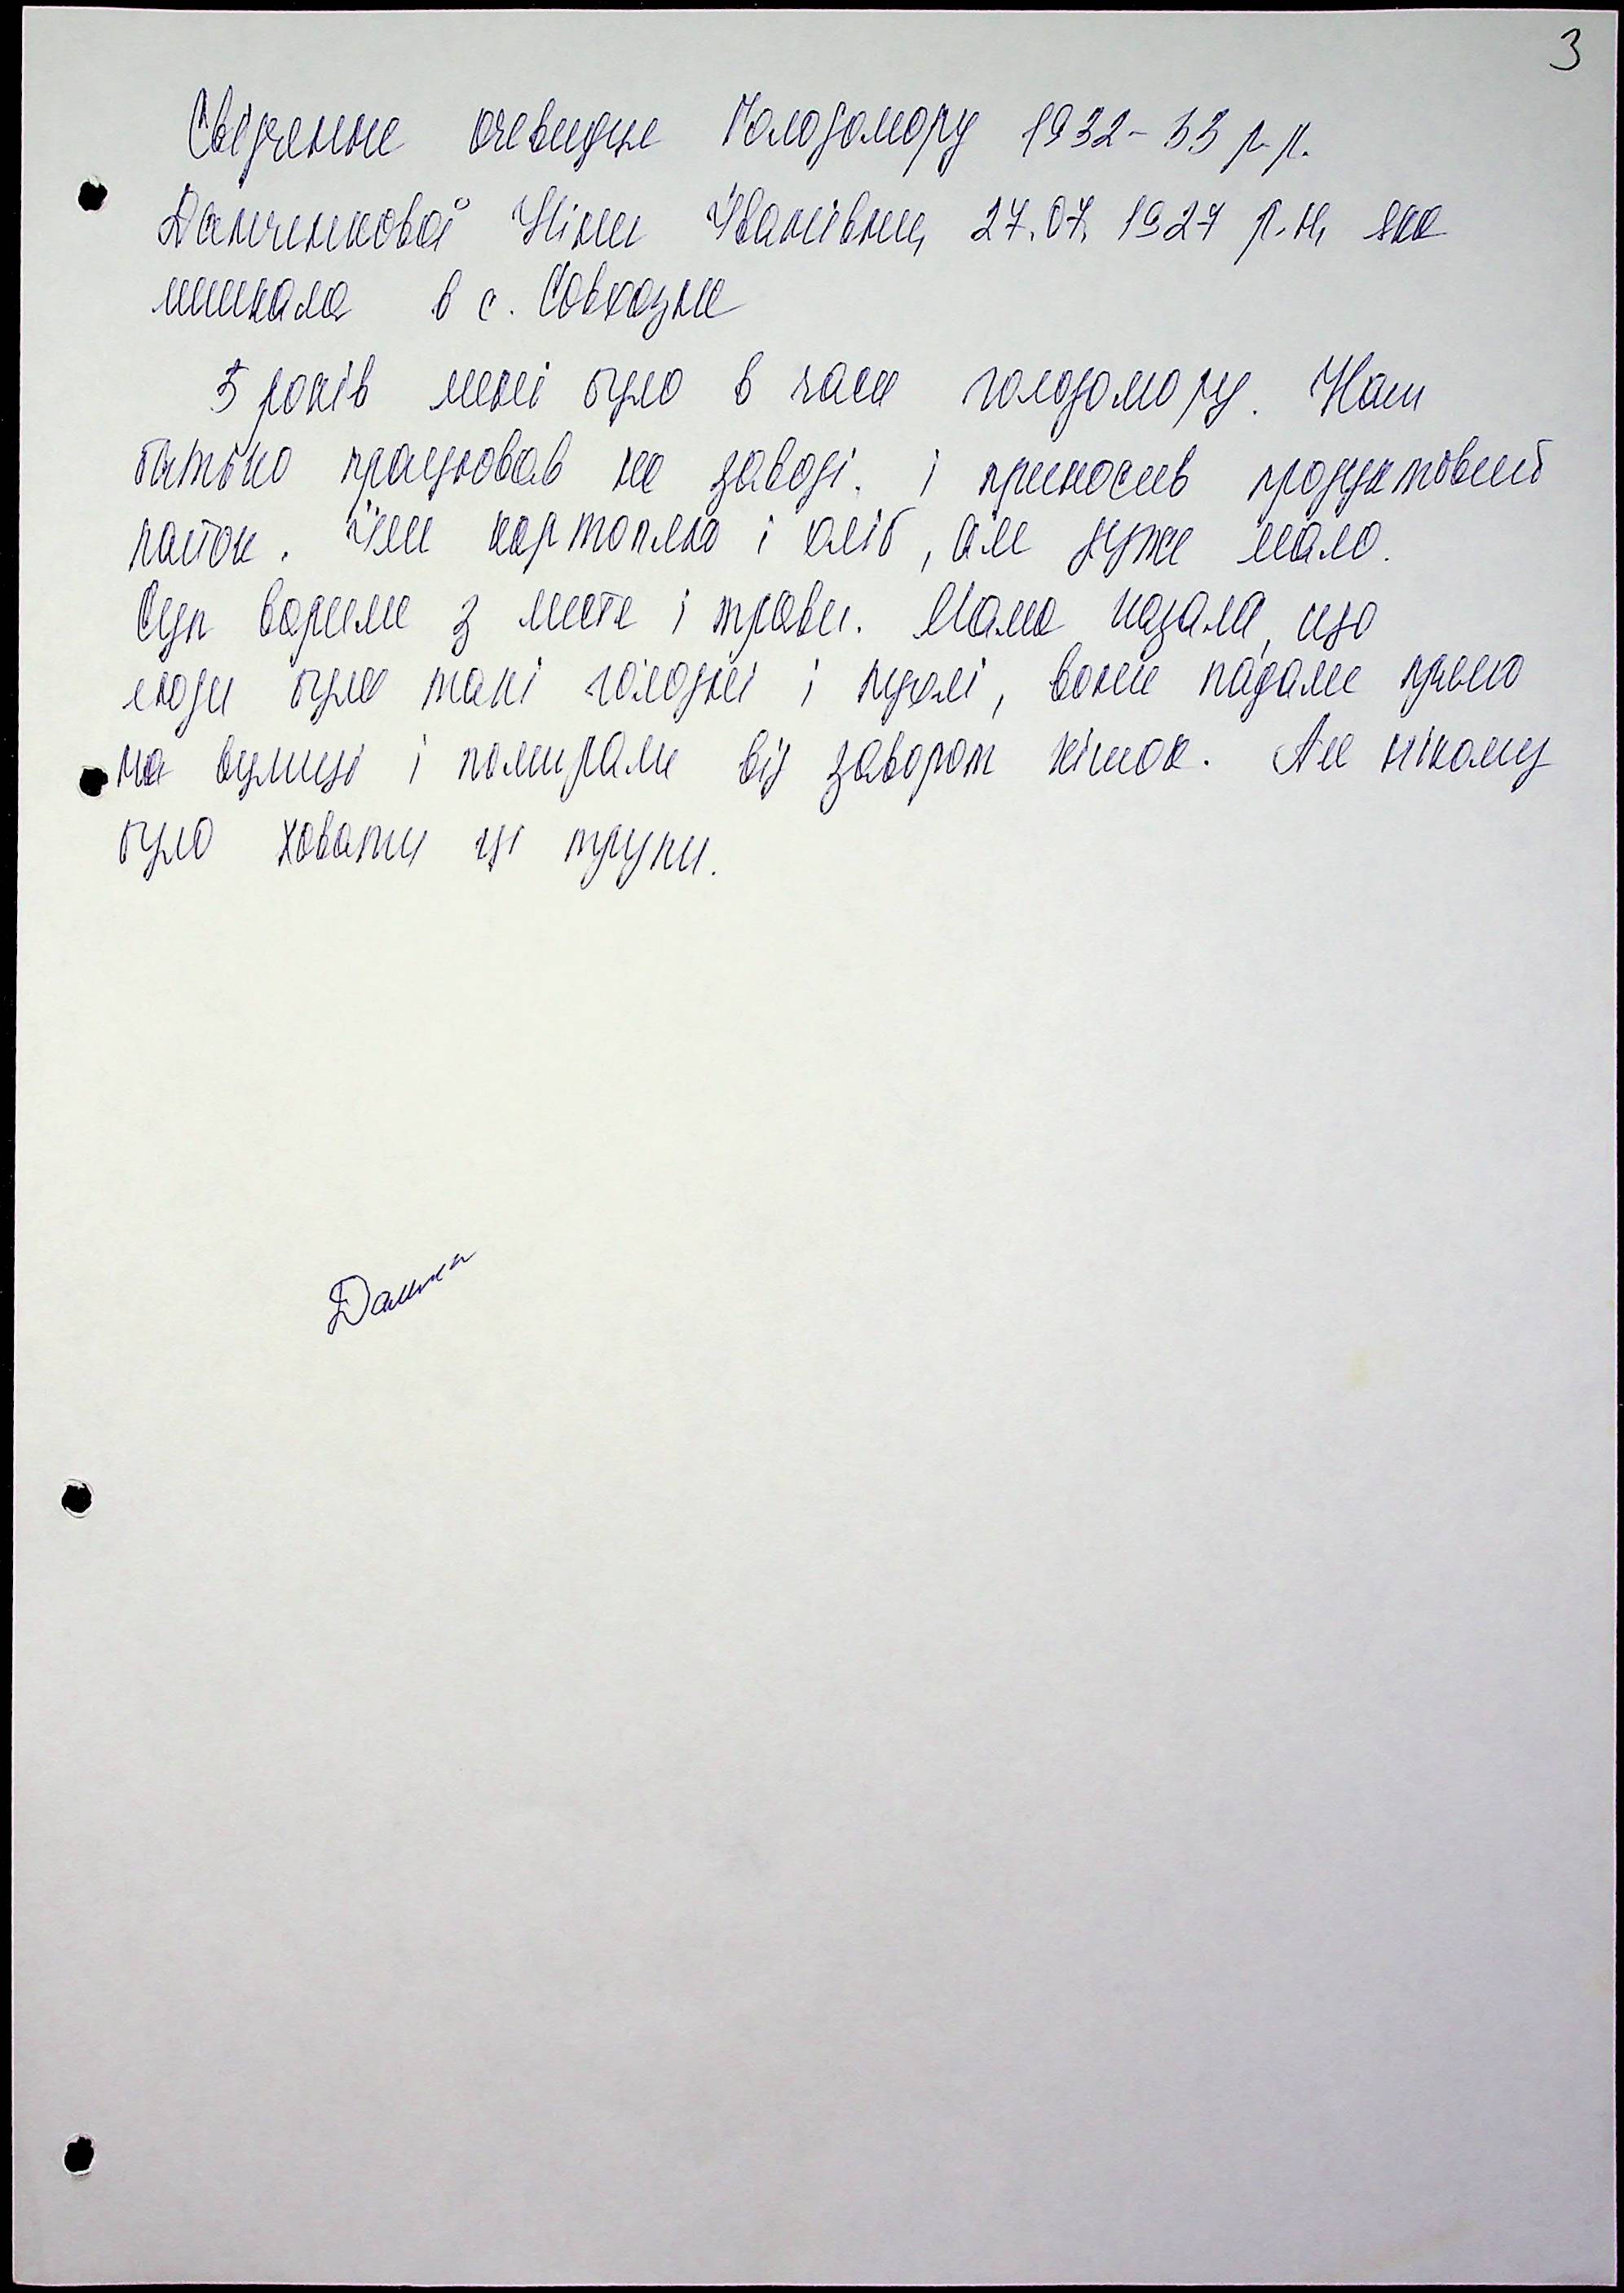 3
Свідчення очевидця Голодомору 1932-33 р.р.
Данченкової Ніни Іванівни, 27.07.1927 р.н, яка
мешкала в с. Совхозне
5 років мені було в часи голодомору. Наш
батько працював на заводі. і приносив продуктовий
пайок. Їли картоплю і хліб, але дуже мало.
Суп варили з листя і трави. Мама казала, що
люди були такі голодні і пухлі, вони падали прямо
на вулиці і помирали від заворот кишок. Але нікому
було ховати ці трупи.